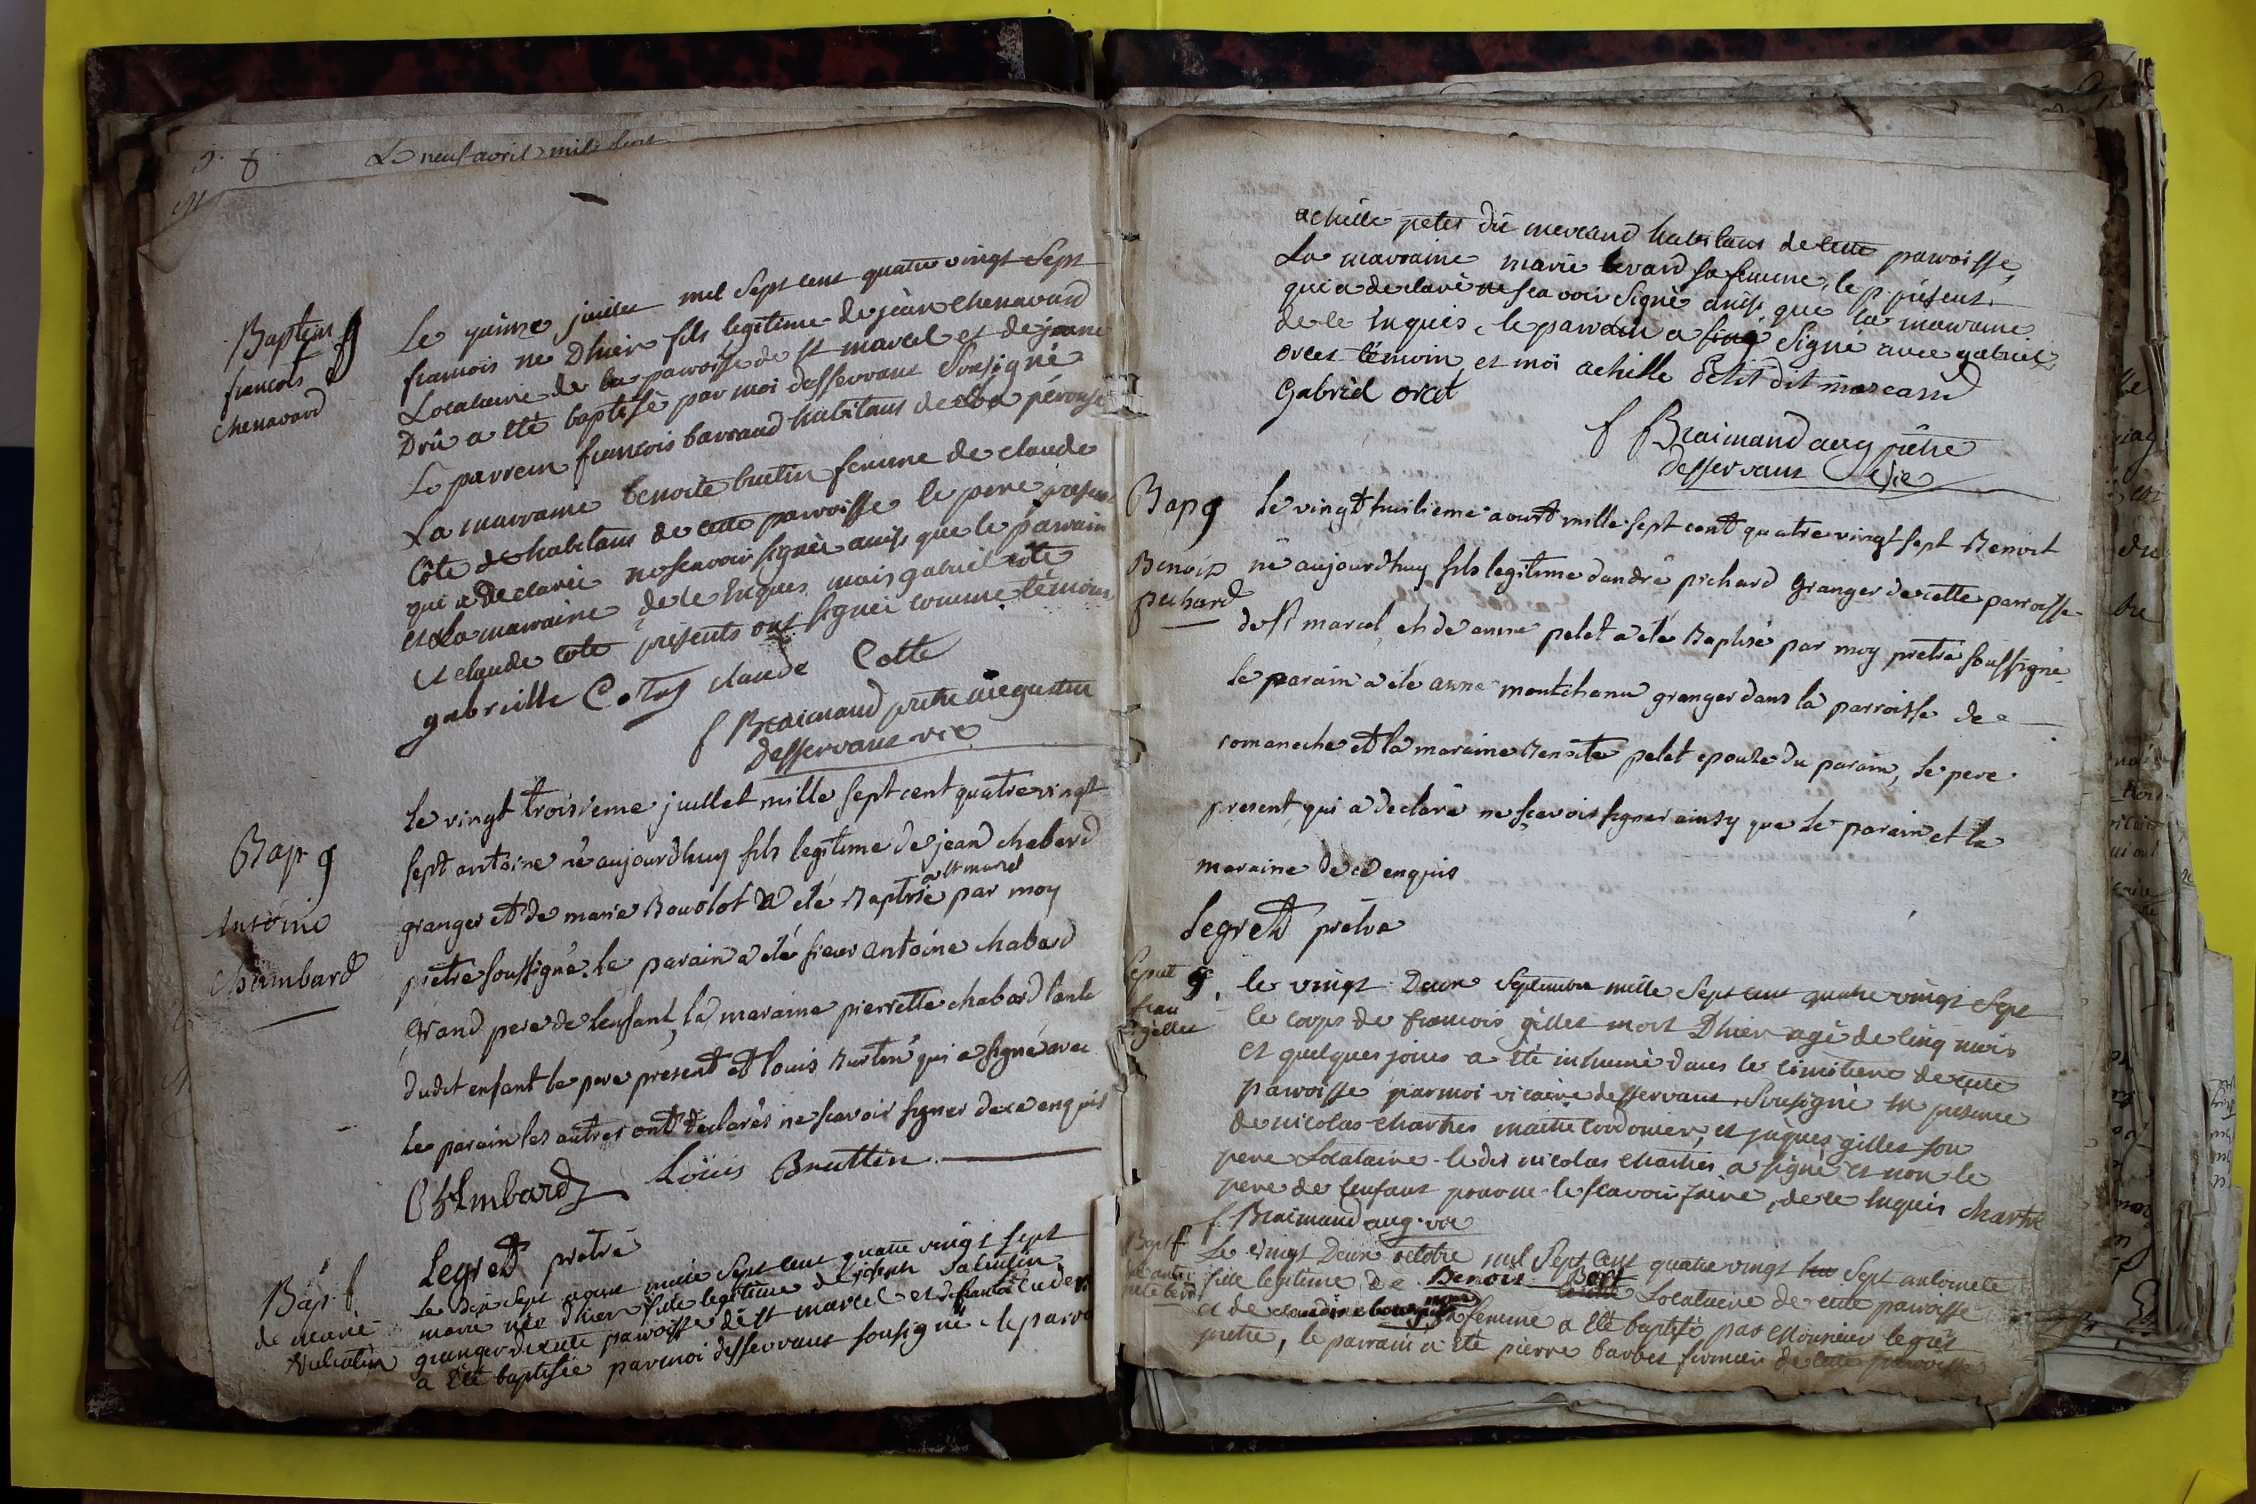 Le neuf avril mil
Baptem g
francois
chenavard
Le quinze juillet mil Sept cent quatre vingt Sept
francois ne Dhier fils legitime de jean chenavard
Locataire de la paroisse de st marcel et de jeanne
Drû a eté baptisé par moi desservant Sousigné
Le parrein francois barraud habitant de la pérouse
La marraine benoite bretin femme de claude
Côte habitans de cette parroisse le pere present
qui a declaré ne scavoir signer ainsi que le parrain
et La marraine de ce enquis mais gabriel côte
et claude cote présents ont signés comme témoins
gabrielle Cotte claude Cotte
f Braimand prêtre augustin
desservant vic
Bap g
Antoine
Chambard
le vingt troisieme juillet mille sept cent quatre vingt
sept antoine né aujourdhuy fils legitime de jean chabard
granger et de marie Boudot a eté Baptisé a st marcel par moy
prêtre soussigné. le parain a eté sieur antoine chabard
grand pere de lenfant, la maraine pierrette chabard tante
dudit enfant le pere present et louis Burtin qui a signé avec
le parain les autres ont declarés ne scavoir signer de ce enquis
Chambard Loüis Bruttin
Legret pretre
Bap. f.
de marie
Valentin
Le Dix Sept aoust mille Sept cent quatre vingt sept
marie née dhier fille legitime de joseph valentin
granger de cette paroisse de st marcel et de
a été baptisée par moi desservant sousigné le parra
achille petit dit marcand habitans de cette parroisse,
La marraine marie berard sa femme, le p present
qui a declaré ne sca voir signé ainsi que la marraine
de ce enquis, le parrain a signé avec gabriel
orcet témoin, et moi achille Petit dit marcand
Gabriel orcet
f Braimand aug prêtre
desservant vic
Bap g
Benoit
pichard
le vingt huitieme aoust mille sept cent quatre vingt sept Benoit
né aujourdhuy fils legitime dandré pichard granger de cette parroisse
de st marcel et de anne pelet a eté Baptisé par moy pretre soussigné
le parain a eté anne montchanu granger dans la parroisse de
romaneche et la maraine Benoite pelet epouze du parain, le pere
present, qui a declaré ne scavoir signer ainsy que le parain et la
maraine de ce enquis
Legret prêtre
Sepult g
fran
gilles
le vingt Deux Septembre mille Sept cent quatre vingt Sept
le corps de francois gilles mort Dhier agé de cinq mois
et quelques jours a été inhumé dans le cimetiere de cette
paroisse par moi vicaire desservant, sousigné en presence
de nicolas chartres maitre cordonier, et jaques gilles son
pere Locataire. le dit nicolas chartres a signé et non le
pere de lenfant pour ne le scavoir faire, de ce enquis chartre
f. Braimand aug. vic
Bapt f
Le vingt Deux octobre mil Sept Cent quatre vingt Sept antoinete
fille legitime de Benoit Locataire de cette paroisse
et de claudine femme a été baptisé par Monsieur legret
pretre, le parrain a été pierre barbet fermier de cette paroisse